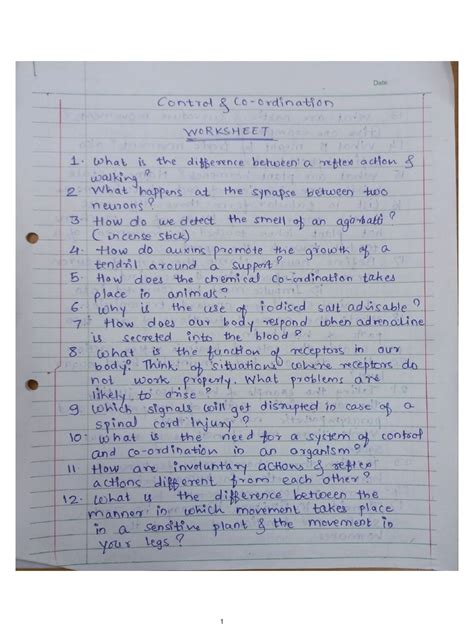 Date
Control & Co-ordination
WORKSHEET
1. What is the difference between a reflex action &
walking?
2. What happens at the synapse between two
neurons?
3. How do we detect the smell of an agarbatti?
(incense stick)
4. How do auxins promote the growth of a
tendril around a support?
5. How does the chemical co-ordination takes
place in animals?
6. Why is the use of iodised salt advisable?
7. How does our body respond when adrenaline
is secreted into the blood?
8. What is the function of receptors in our
body? Think of situations where receptors do
not work properly. What problems are
likely to arise?
9. Which signals will get disrupted in case of a
spinal cord injury?
10. What is the need for a system of control
and co-ordination in an organism?
11. How are involuntary actions & reflex
actions different from each other?
12. What is the difference between the
manner in which movement takes place
in a sensitive plant & the movement in
your legs?
1